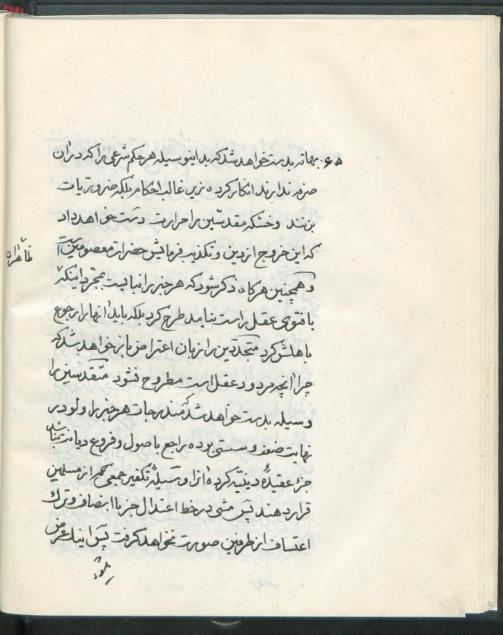 ۶۵ بهانه بدست خواهد شد که بداینوسیله هر حکم شرعی را که در ان
صرفه ندارند انکار کرده زیر غالب احکام بلکه ضروریات
بزنند و خشکه مقدسین را حرارت دست خواهد داد
که این خروج از دین و تکذیب فرمایش حضرات معصومین است
و همچنین هرگاه ذکر شود که هر خبر را نبایست بمجرد اینکه
با فتوی عقل راست نیامد طرح کرد بلکه باید انها را رجوع
باهلش کرد متجددین را زبان اعتراض باز خواهد شد که
چرا انچه مردود عقل است مطروح نشود متقدسین را
وسیله بدست خواهد شد که مندرجات هر خبر را ولو در
نهایت ضعف و سستی بوده راجع باصول و فروع دیانت نباشد
جزء عقیده دینیه کرده انرا وسیله تکفیر جمعی از مسلمین
قرار دهند پس مشی در خط اعتدال جز با انصاف و ترک
اعتساف از طرفین صورت نخواهد گرفت پس اینک عرض